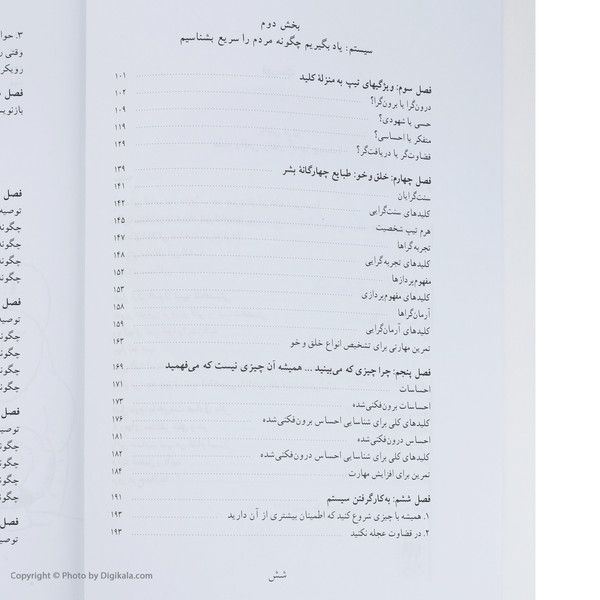 بخش دوم
سیستم: یاد بگیریم چگونه مردم را سریع بشناسیم
فصل سوم: ویژگیهای تیپ به منزلهٔ کلید ۱۰۱
درون‌گرا یا برون‌گرا؟ ۱۰۲
حسی یا شهودی؟ ۱۰۹
متفکر یا احساسی؟ ۱۱۹
قضاوت‌گر یا دریافت‌گر؟ ۱۲۹
فصل چهارم: خلق و خو: طبایع چهارگانهٔ بشر ۱۳۹
سنت‌گرایان ۱۴۱
کلیدهای سنت‌گرایی ۱۴۲
هرم تیپ شخصیت ۱۴۵
تجربه‌گراها ۱۴۷
کلیدهای تجربه‌گرایی ۱۴۸
مفهوم‌پردازها ۱۵۲
کلیدهای مفهوم‌پردازی ۱۵۳
آرمان‌گراها ۱۵۸
کلیدهای آرمان‌گرایی ۱۵۹
تمرین مهارتی برای تشخیص انواع خلق و خو ۱۶۳
فصل پنجم: چرا چیزی که می‌بینید ... همیشه آن چیزی نیست که می‌فهمید ۱۶۹
احساسات ۱۷۱
احساسات برون‌فکنی‌شده ۱۷۳
کلیدهای کلی برای شناسایی احساس برون‌فکنی‌شده ۱۷۶
احساس درون‌فکنی‌شده ۱۸۱
کلیدهای کلی برای شناسایی احساس درون‌فکنی‌شده ۱۸۲
تمرین برای افزایش مهارت ۱۸۴
فصل ششم: به‌کارگرفتن سیستم ۱۹۱
۱. همیشه با چیزی شروع کنید که اطمینان بیشتری از آن دارید ۱۹۳
۲. در قضاوت عجله نکنید ۱۹۳
شش
۳. حوا
وقتی ر
رویکر
فصل
بازنویس
فصل
توصیه
چگونه
چگونه
چگونه
چگونه
فصل
توصیه
چگونه
چگونه
چگونه
چگونه
فصل
توصیه
چگونه
چگونه
چگونه
چگونه
فصل
توصیه
Copyright © Photo by Digikala.com